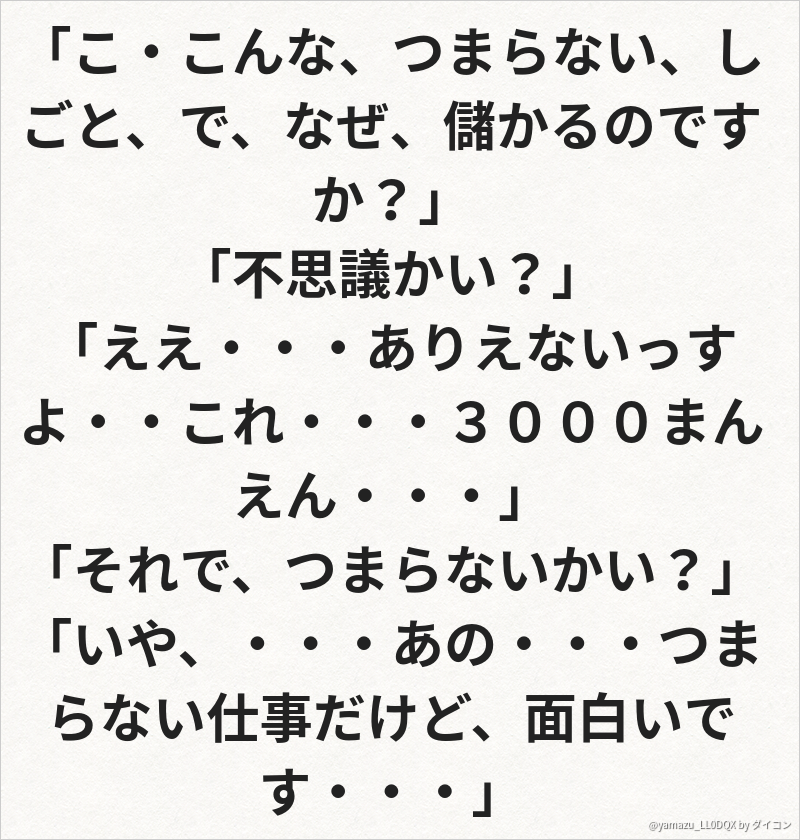 「こ・こんな、つまらない、し
ごと、で、なぜ、儲かるのです
か？」
「不思議かい？」
「ええ・・・ありえないっす
よ・・これ・・・３０００まん
えん・・・」
「それで、つまらないかい？」
「いや、・・・あの・・・つま
らない仕事だけど、面白いで
す・・・」
@yamazu_LL0DQX by ダイコン